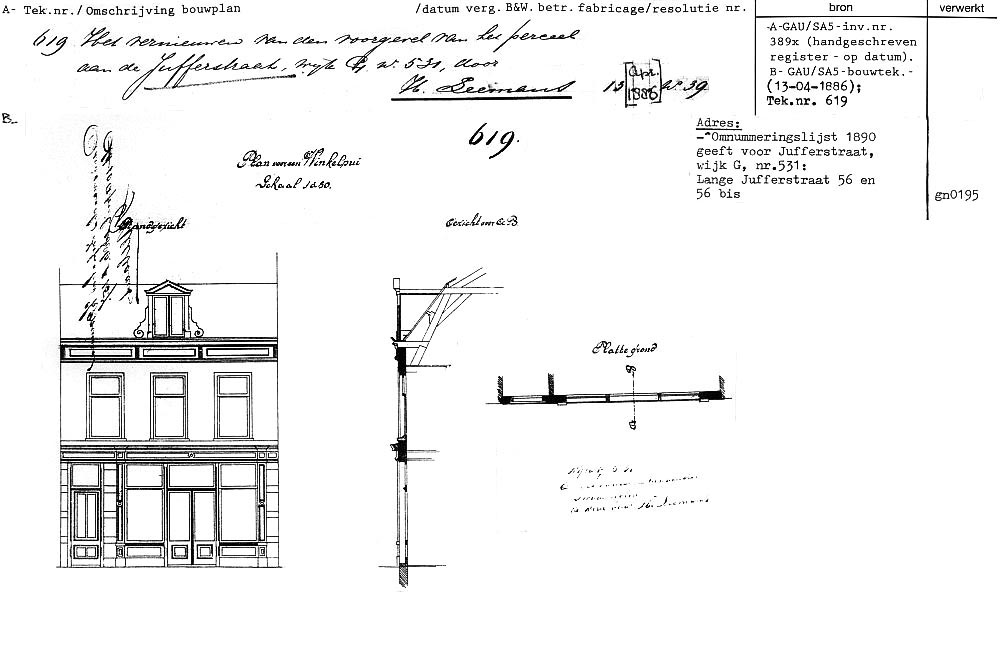 A- Tek.nr./Omschrijving bouwplan
/datum verg. B&W. betr. fabricage/resolutie nr.
bron
verwerkt
619 Het vernieuwen van den voorgevel van het perceel
aan de Jufferstraat, wijk G, nº. 531, door
H. Seemans 13 [Apr. 1886] Nº. 39
-A-GAU/SA5-inv.nr.
389x (handgeschreven
register - op datum).
B- GAU/SA5-bouwtek.-
(13-04-1886);
Tek.nr. 619
B-
619.
Adres:
-"Omnummeringslijst 1890
geeft voor Jufferstraat,
wijk G, nr.531:
Lange Jufferstraat 56 en
56 bis
gn0195
Plan van een Winkelpui
Schaal 1 à 50.
Standgezicht
Gezicht over A.B.
Platte grond
B
a
H. Seemans